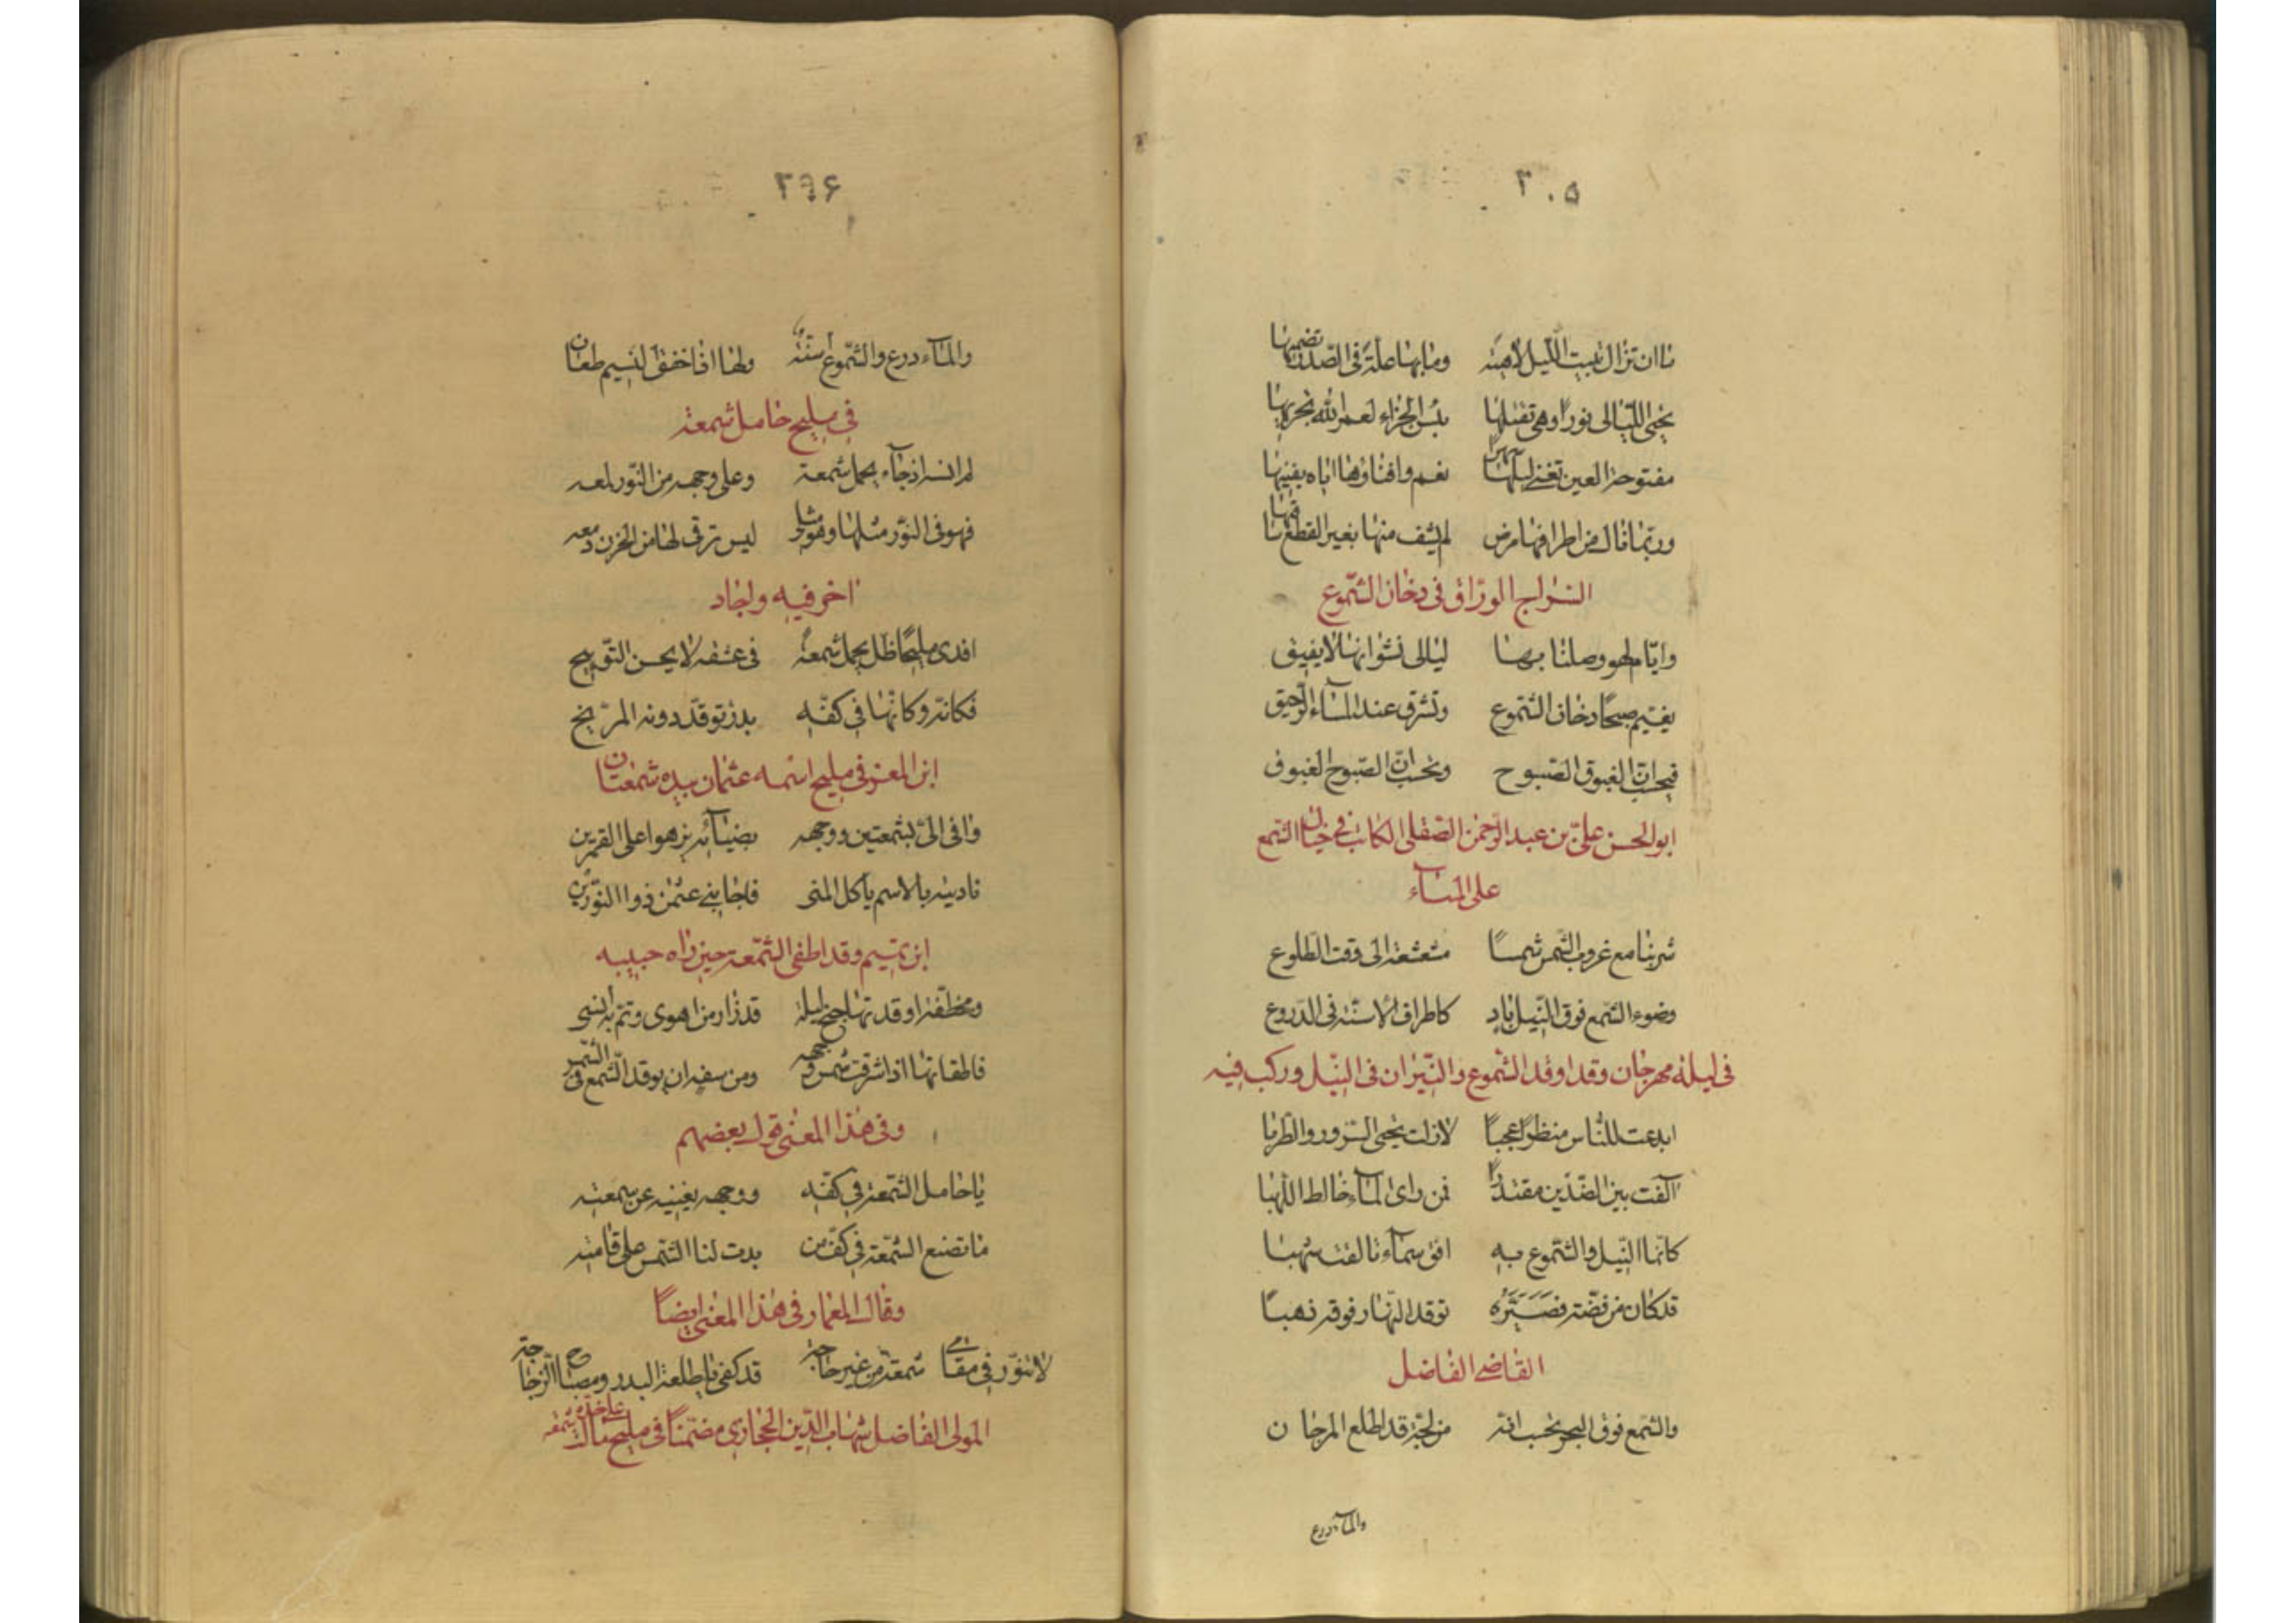 ٣٠٥
ما ان تزال تبيت الليل لاهبة وما بها علة في الصدر تضميها
يحيي الليالي نورا وهي تقتلها بئس الجزاء لعمر الله يجزيها
مفتوحة العين تفني ليلها سهرا نعم وافناؤها اياه يفنيها
وربما نال من اطرافها مرض لم يشف منها بغير القطع
السراج الوراق في دخان الشموع
وايام لهو وصلنا بها ليالي نشوانها لا يفيق
يغيم صبحا دخان الشموع وتشرق عند المساء الرحيق
فيحسب ان الغبوق الصبوح ونحسب ان الصبوح الغبوق
ابو الحسن علي بن عبد الرحمن الصقلي الكاتب في خيال الشمع
على الماء
شربنا مع غروب الشمس شمسا مشعشعة الى وقت الطلوع
وضوء الشمع فوق النيل باد كاطراف الاسنة في الدروع
في ليلة مهرجان وقد اوقد الشموع والنيران في النيل وركب فيه
ابدعت للناس منظرا عجبا لازلت يحيي السرور والطربا
الفت بين الضدين مقتدرا فمن راى الماء خالط اللهبا
كانما النيل والشموع به افق سماء تالفت شهبا
قد كان من فضة فصيره توقد النهار فوقه ذهبا
القاضي الفاضل
والشمع فوق البحر يحسب انه من لجة قد اطلع المرجان
والماء درع
٢٩٦
والماء درع والشموع اسنة ولها اذا خفق النسيم طعان
في مليح حامل شمعة
لم انسه اذ جاء يحمل شمعة وعلى وجهه من النور لمعه
فهو في النور مثلها وهو ليس ترقى لها من الحزن دمعه
اخر فيه واجاد
افدي مليحا ظل يحمل شمعة في عشقه لا يحسن التوبيخ
فكانه وكانها في كفه بدر توقد دونه المريخ
ابن المعتز في مليح اسمه عثمان بيده شمعتان
وافى الي بشمعتين ووجهه بضيائه يزهوا على القمرين
ناديته بالاسم يا كل المنى فاجابني عثمن ذوا النورين
ابن تميم وقد اطفى الشمعة حين راه حبيبه
اوقدتها جنح ليلة قد زار من اهوى وتم به انسي
فاطفاتها اذ اشرقت شمس وجهه ومن سفه ان يوقد الشمع في الشمس
وفي هذا المعنى قول بعضهم
يا حامل الشمعة في كفه ووجهه يغنيه عن شمعته
ما تصنع الشمعة في كف من بدت لنا الشمس على قامته
وقال المعمار في هذا المعنى ايضا
لا تنور في مقامي شمعة من غير حاجة قد كفى يا طلعة البدر ومصباح الزجاجة
المولى الفاضل شهاب الدين الحجازي مضمنا في مليح على خده شمعة